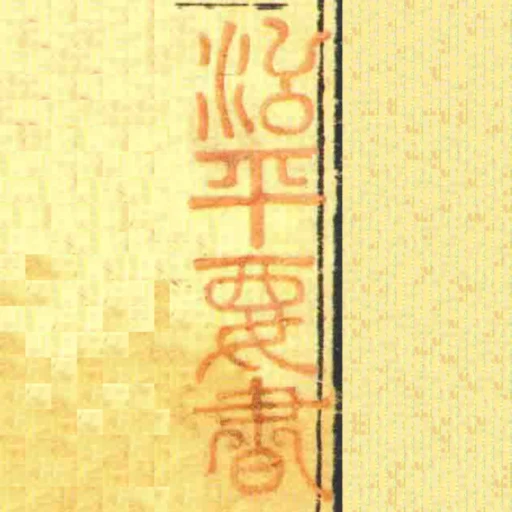 治平要書